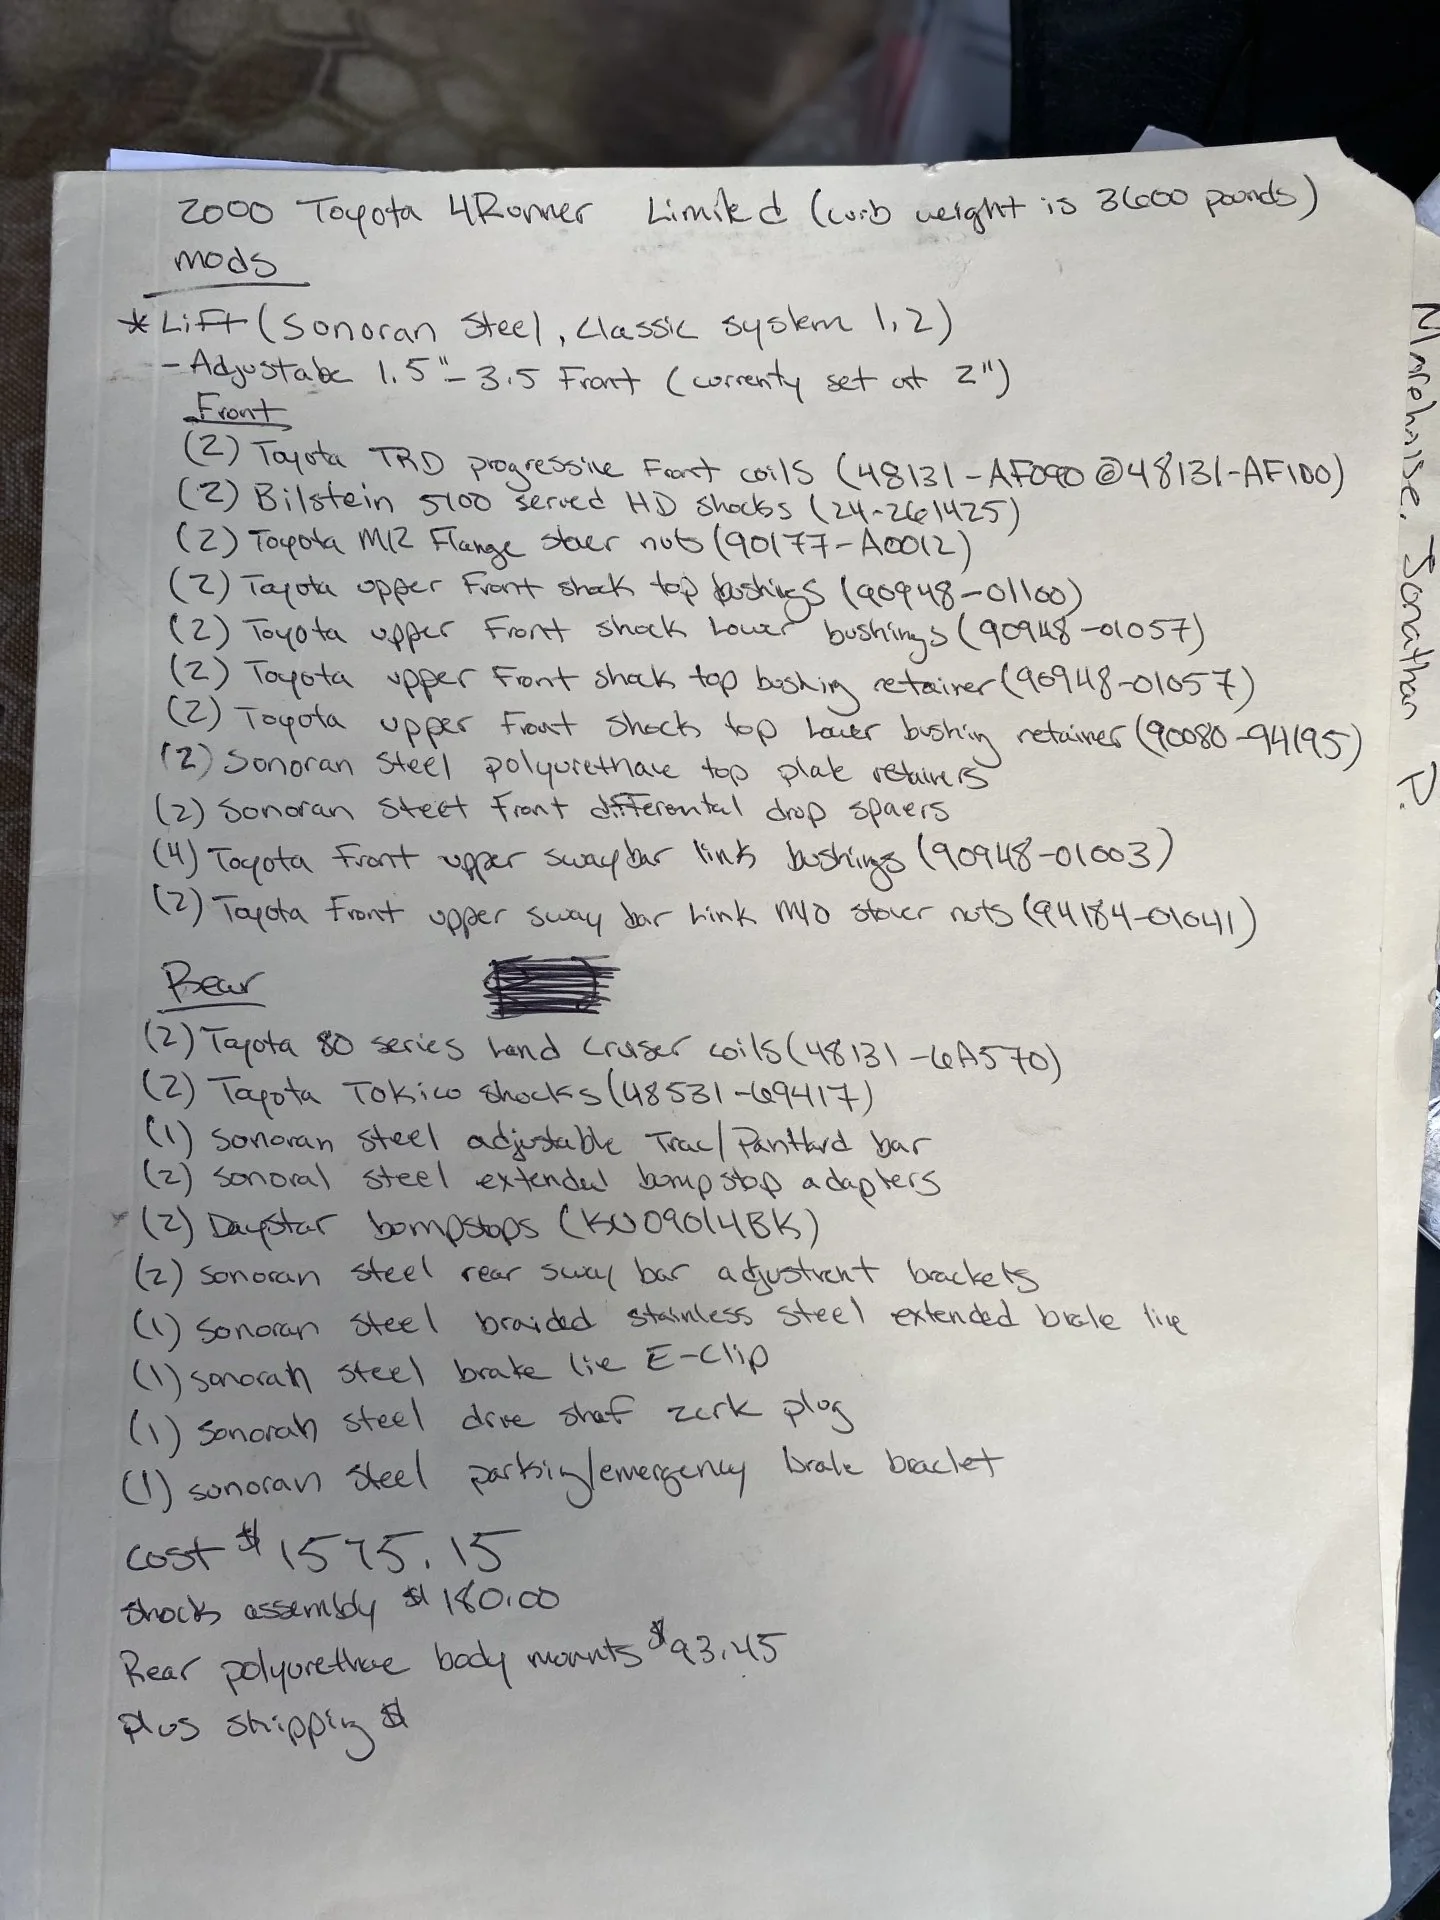 2000 Toyota 4Runner Limited (curb weight is 3600 pounds)
mods
*Lift (Sonoran Steel, Classic system 1,2)
- Adjustabe 1.5"-3.5 Front (currenty set at 2")
Front
(2) Toyota TRD progressive Front coils (48131-AF090@48131-AF100)
(2) Bilstein 5100 seried HD shocks (24-261425)
(2) Toyota M12 Flange stover nuts (90177-A0012)
(2) Toyota upper Front shock top bushings (90948-01100)
(2) Toyota upper Front shock Lower bushings (90948-01057)
(2) Toyota upper Front shock top bushing retainer (90948-01057)
(2) Toyota upper Front shock top Lower bushing retainer (90080-94195)
(2) Sonoran Steel polyurethane top plate retainers
(2) Sonoran Steel Front differental drop spaers
(4) Toyota Front upper sway bar link bushings (90948-01003)
(2) Toyota Front upper sway bar Link M10 stover nuts (94184-01041)
Rear
(2) Toyota 80 series Land Cruser coils (48131-6A570)
(2) Toyota Tokico shocks (48531-69417)
(1) Sonoran steel adjustable Trac/PanHard bar
(2) sonoral steel extended bumpstop adapters
(2) Daystar bumpstops (KU09014BK)
(2) sonoran steel rear sway bar adjustment brackets
(1) sonoran steel braided stainless steel extended brake line
(1) sonoran steel brake line E-Clip
(1) sonoran steel drive shaf zerk plug
(1) sonoran steel parking/emergency brake bracket
cost $1575.15
shock assembly $180.00
Rear polyurethane body mounts $93.45
plus shipping $
Jonathan P.